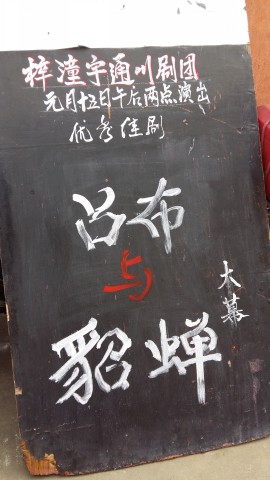 梓潼宇通川剧团
元月十五日午后两点演出
优秀佳剧
吕布
与
貂蝉
大幕